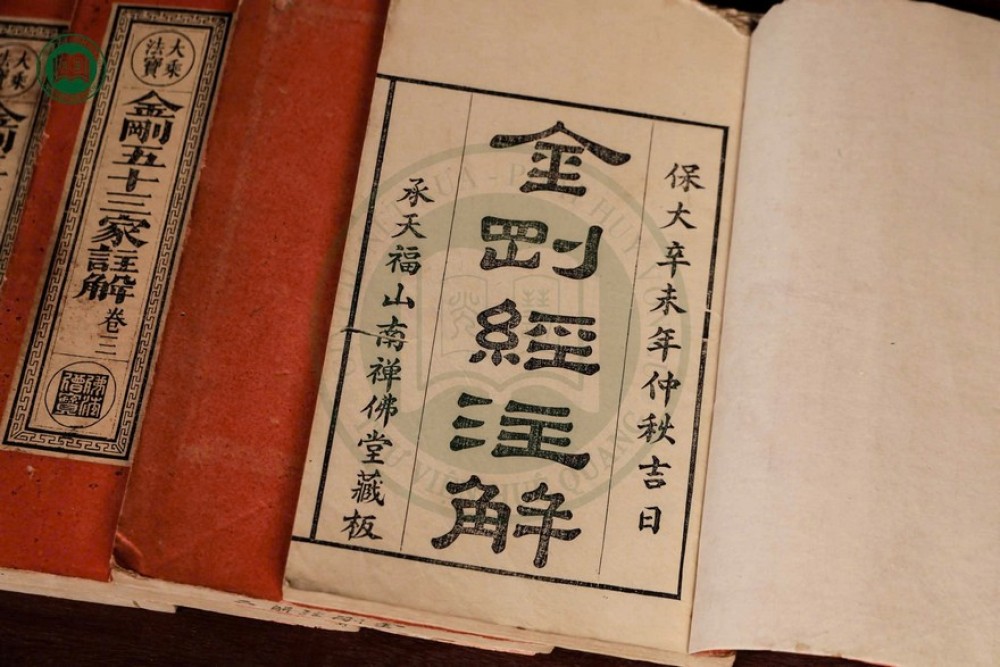 保大辛未年仲秋吉日
金剛經注解
承天福山南禅佛堂藏板
大乘
法寶
金剛五十三家註解
卷三
大乘
法寶
金剛